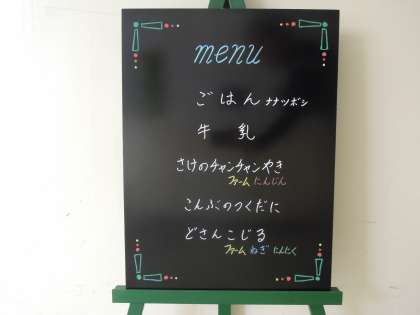 menu
ごはん ナナツボシ
牛 乳
さけのチャンチャンやき
ファーム にんじん
こんぶのつくだに
どさんこじる
ファーム ねぎ にんにく